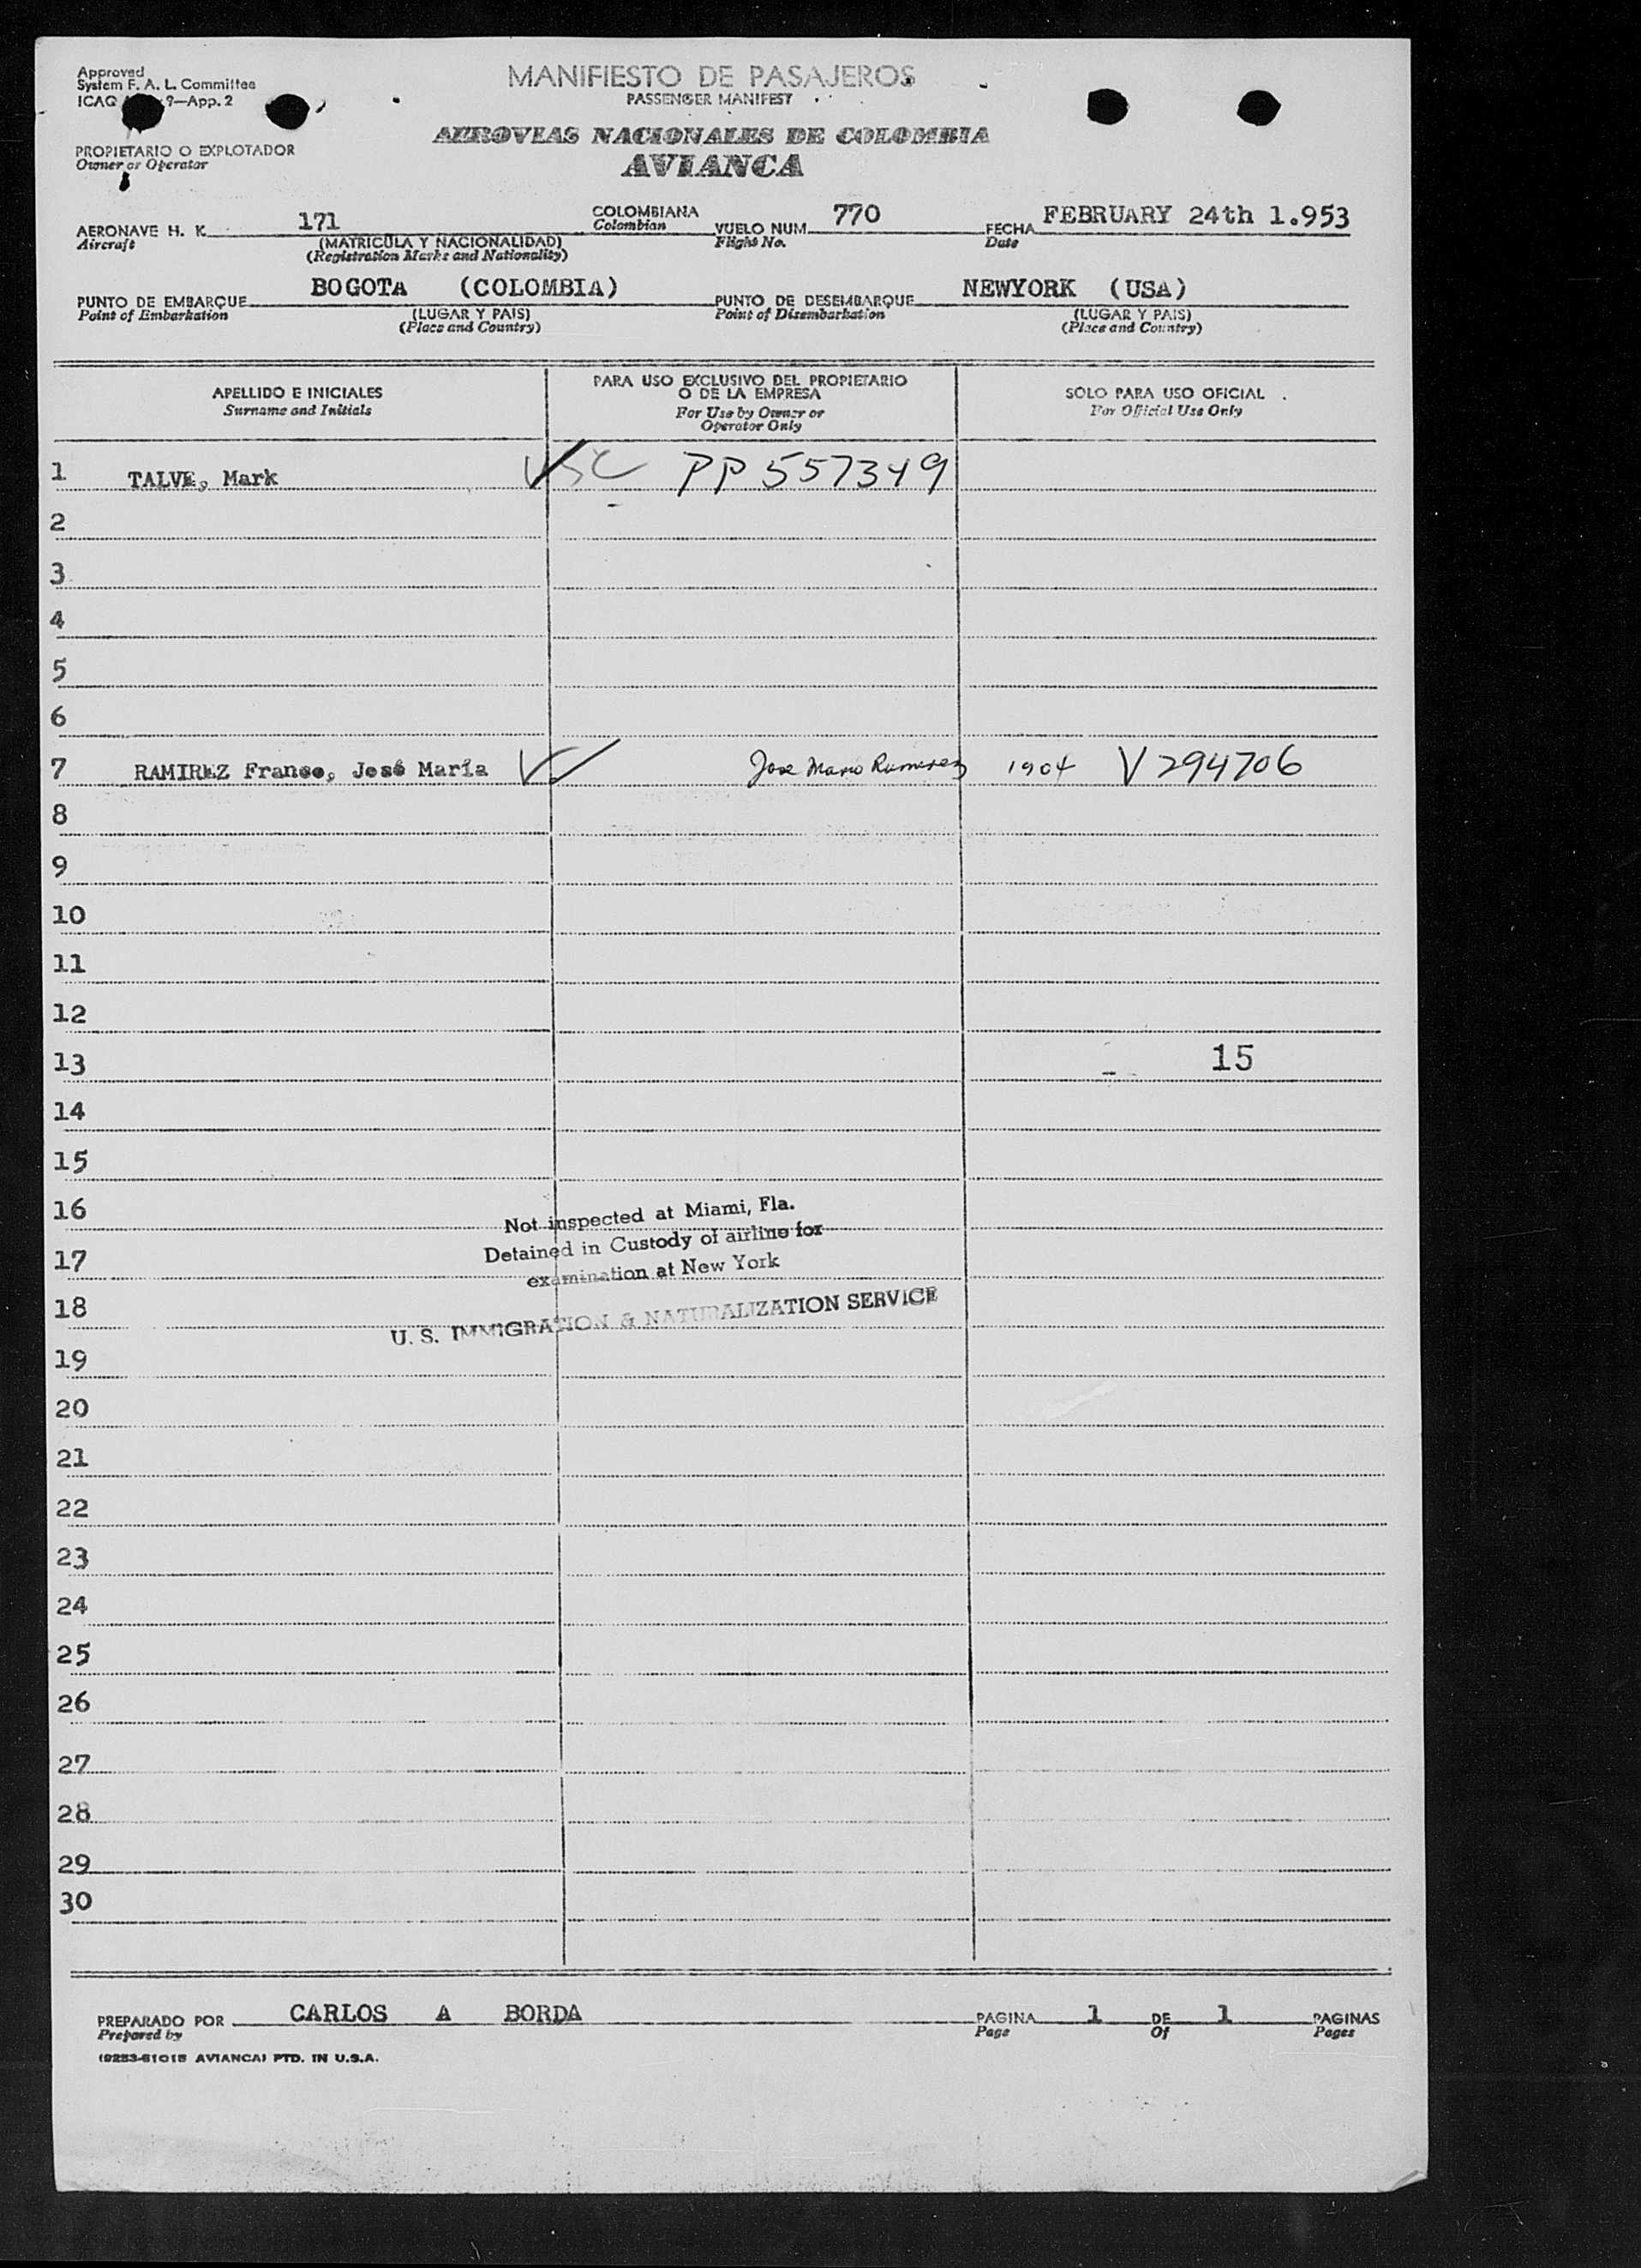 Approved
System F. A. L. Committee
ICAO 9—App. 2
MANIFIESTO DE PASAJEROS
PASSENGER MANIFEST
PROPIETARIO O EXPLOTADOR
Owner or Operator
AEROVIAS NACIONALES DE COLOMBIA
AVIANCA
AERONAVE H. K. 171 COLOMBIANA VUELO NUM. 770 FECHA FEBRUARY 24th 1.953
Aircraft (MATRICULA Y NACIONALIDAD) Colombian Flight No. Date
(Registration Marks and Nationality)
PUNTO DE EMBARQUE BOGOTA (COLOMBIA) PUNTO DE DESEMBARQUE NEWYORK (USA)
Point of Embarkation (LUGAR Y PAIS) Point of Disembarkation (LUGAR Y PAIS)
(Place and Country) (Place and Country)
APELLIDO E INICIALES
Surname and Initials
PARA USO EXCLUSIVO DEL PROPIETARIO
O DE LA EMPRESA
For Use by Owner or
Operator Only
SOLO PARA USO OFICIAL
For Official Use Only
1 TALVE, Mark USC PP 557349
2
3
4
5
6
7 RAMIREZ Franco, José María Jose Mario Ramirez 1904 V 294706
8
9
10
11
12
13 15
14
15
16
Not inspected at Miami, Fla.
17
Detained in Custody of airline for
examination at New York
18
U. S. IMMIGRATION & NATURALIZATION SERVICE
19
20
21
22
23
24
25
26
27
28
29
30
PREPARADO POR CARLOS A BORDA PAGINA 1 DE 1 PAGINAS
Prepared by Page Of Pages
(9253-61018 AVIANCA) PTD. IN U.S.A.